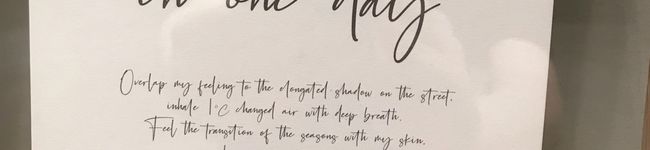 in one day
Overlap my feeling to the elongated shadow on the street,
inhale 1°C changed air with deep breath.
Feel the transition of the seasons with my skin,